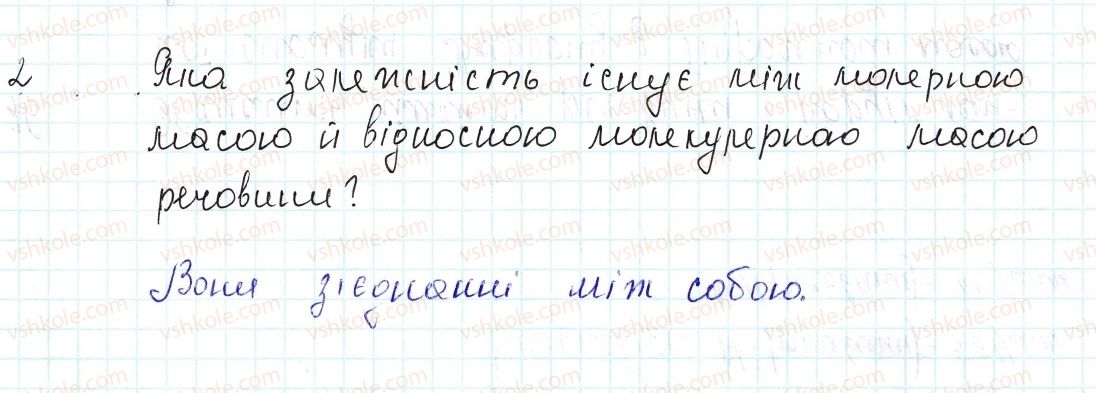 2 Яка залежність існує між молерною
масою й відносною молекулерною масою
речовини?
Вони зієднанні між собою.